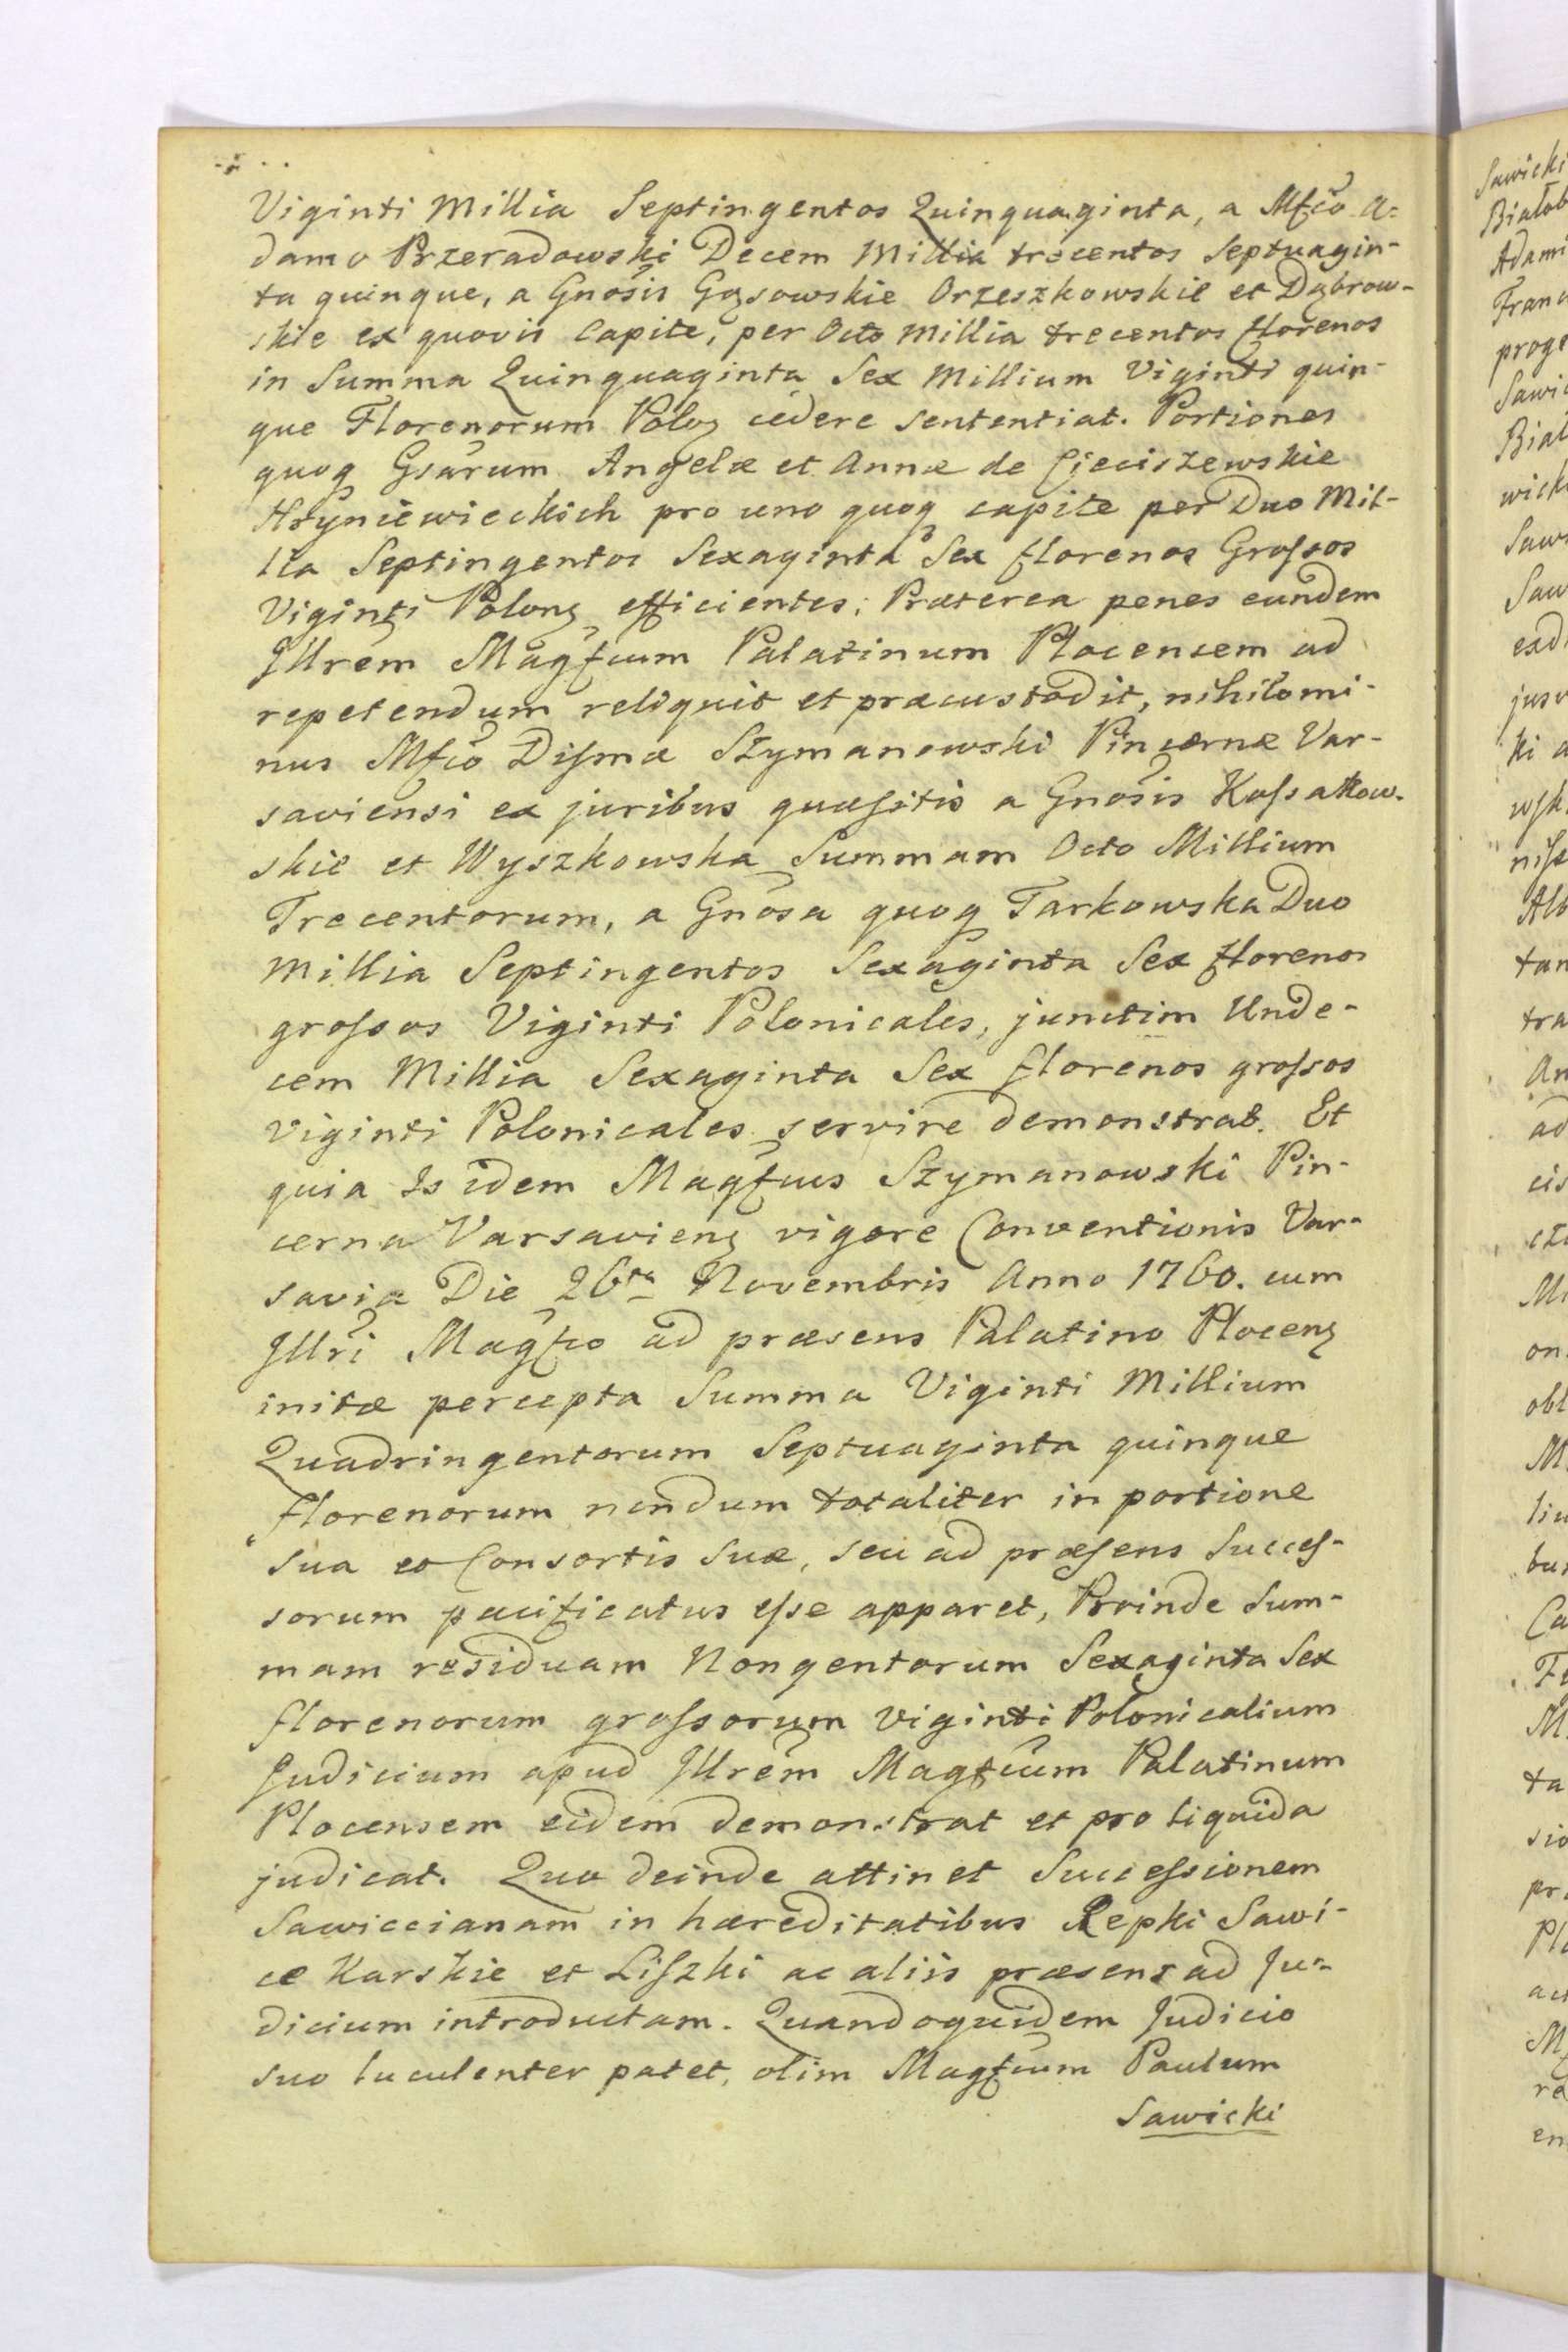 Viginti Millia Septingentos Quinquaginta, a Mfco A=
damo Przeradowski Decem Millia trecentos Septuagin-
ta quinque, a Gnosis Gąsowskie Orzeszkowskie et Dąbrow-
skie ex quovis Capite, per Octo Millia trecentos florenos
in Summa Quinquaginta Sex Millium Viginti quin-
que Florenorum Poloz cedere sententiat. Portiones
quoq Gsarum Angelæ et Annæ de Cieciszewskie
Hryniewieckich pro uno quoq capite per Duo Mil-
lia Septingentos Sexaginta Sex florenos Grossos
Viginti Polonz efficientes; Præterea penes eundem
Jllrem Magfcum Palatinum Plocensem ad
repetendum reliquit et præcustodit, nihilomi-
nus Mfco Dismæ Szymanowski Pincernæ Var-
saviensi ex juribus quæsitis a Gnosis Kossakow-
skie et Wyszkowska Summam Octo Millium
Trecentorum, a Gnosa quoq Tarkowska Duo
Millia Septingentos Sexaginta Sex florenos
grossos Viginti Polonicales, junctim Unde-
cem Millia Sexaginta Sex florenos grossos
viginti Polonicales servire demonstrat. Et
quia Is idem Magfcus Szymanowski Pin-
cerna Varsavienz vigore Conventionis Var-
savia Die 26ta Novembris Anno 1760. cum
Jllri Magfco ad præsens Palatino Plocenz
initæ percepta Summa Viginti Millium
Quadringentorum Septuaginta quinque
florenorum nondum totaliter in portione
sua et Consortis suæ, seu ad præsens Succes-
sorum pacificatus esse apparet, Proinde Sum-
mam residuam Nongentorum Sexaginta Sex
florenorum grossorum viginti Polonicalium
Judicium apud Jllrem Magfcum Palatinum
Plocensem eidem demonstrat et pro liquida
judicat. Quo deinde attinet Successionem
Sawiccianam in hæreditatibus Repki Sawi-
ce Karskie et Liszki ac aliis præsens ad Ju-
dicium introductam. Quandoquidem Judicio
suo luculenter patet, olim Magfcum Paulum
Sawicki